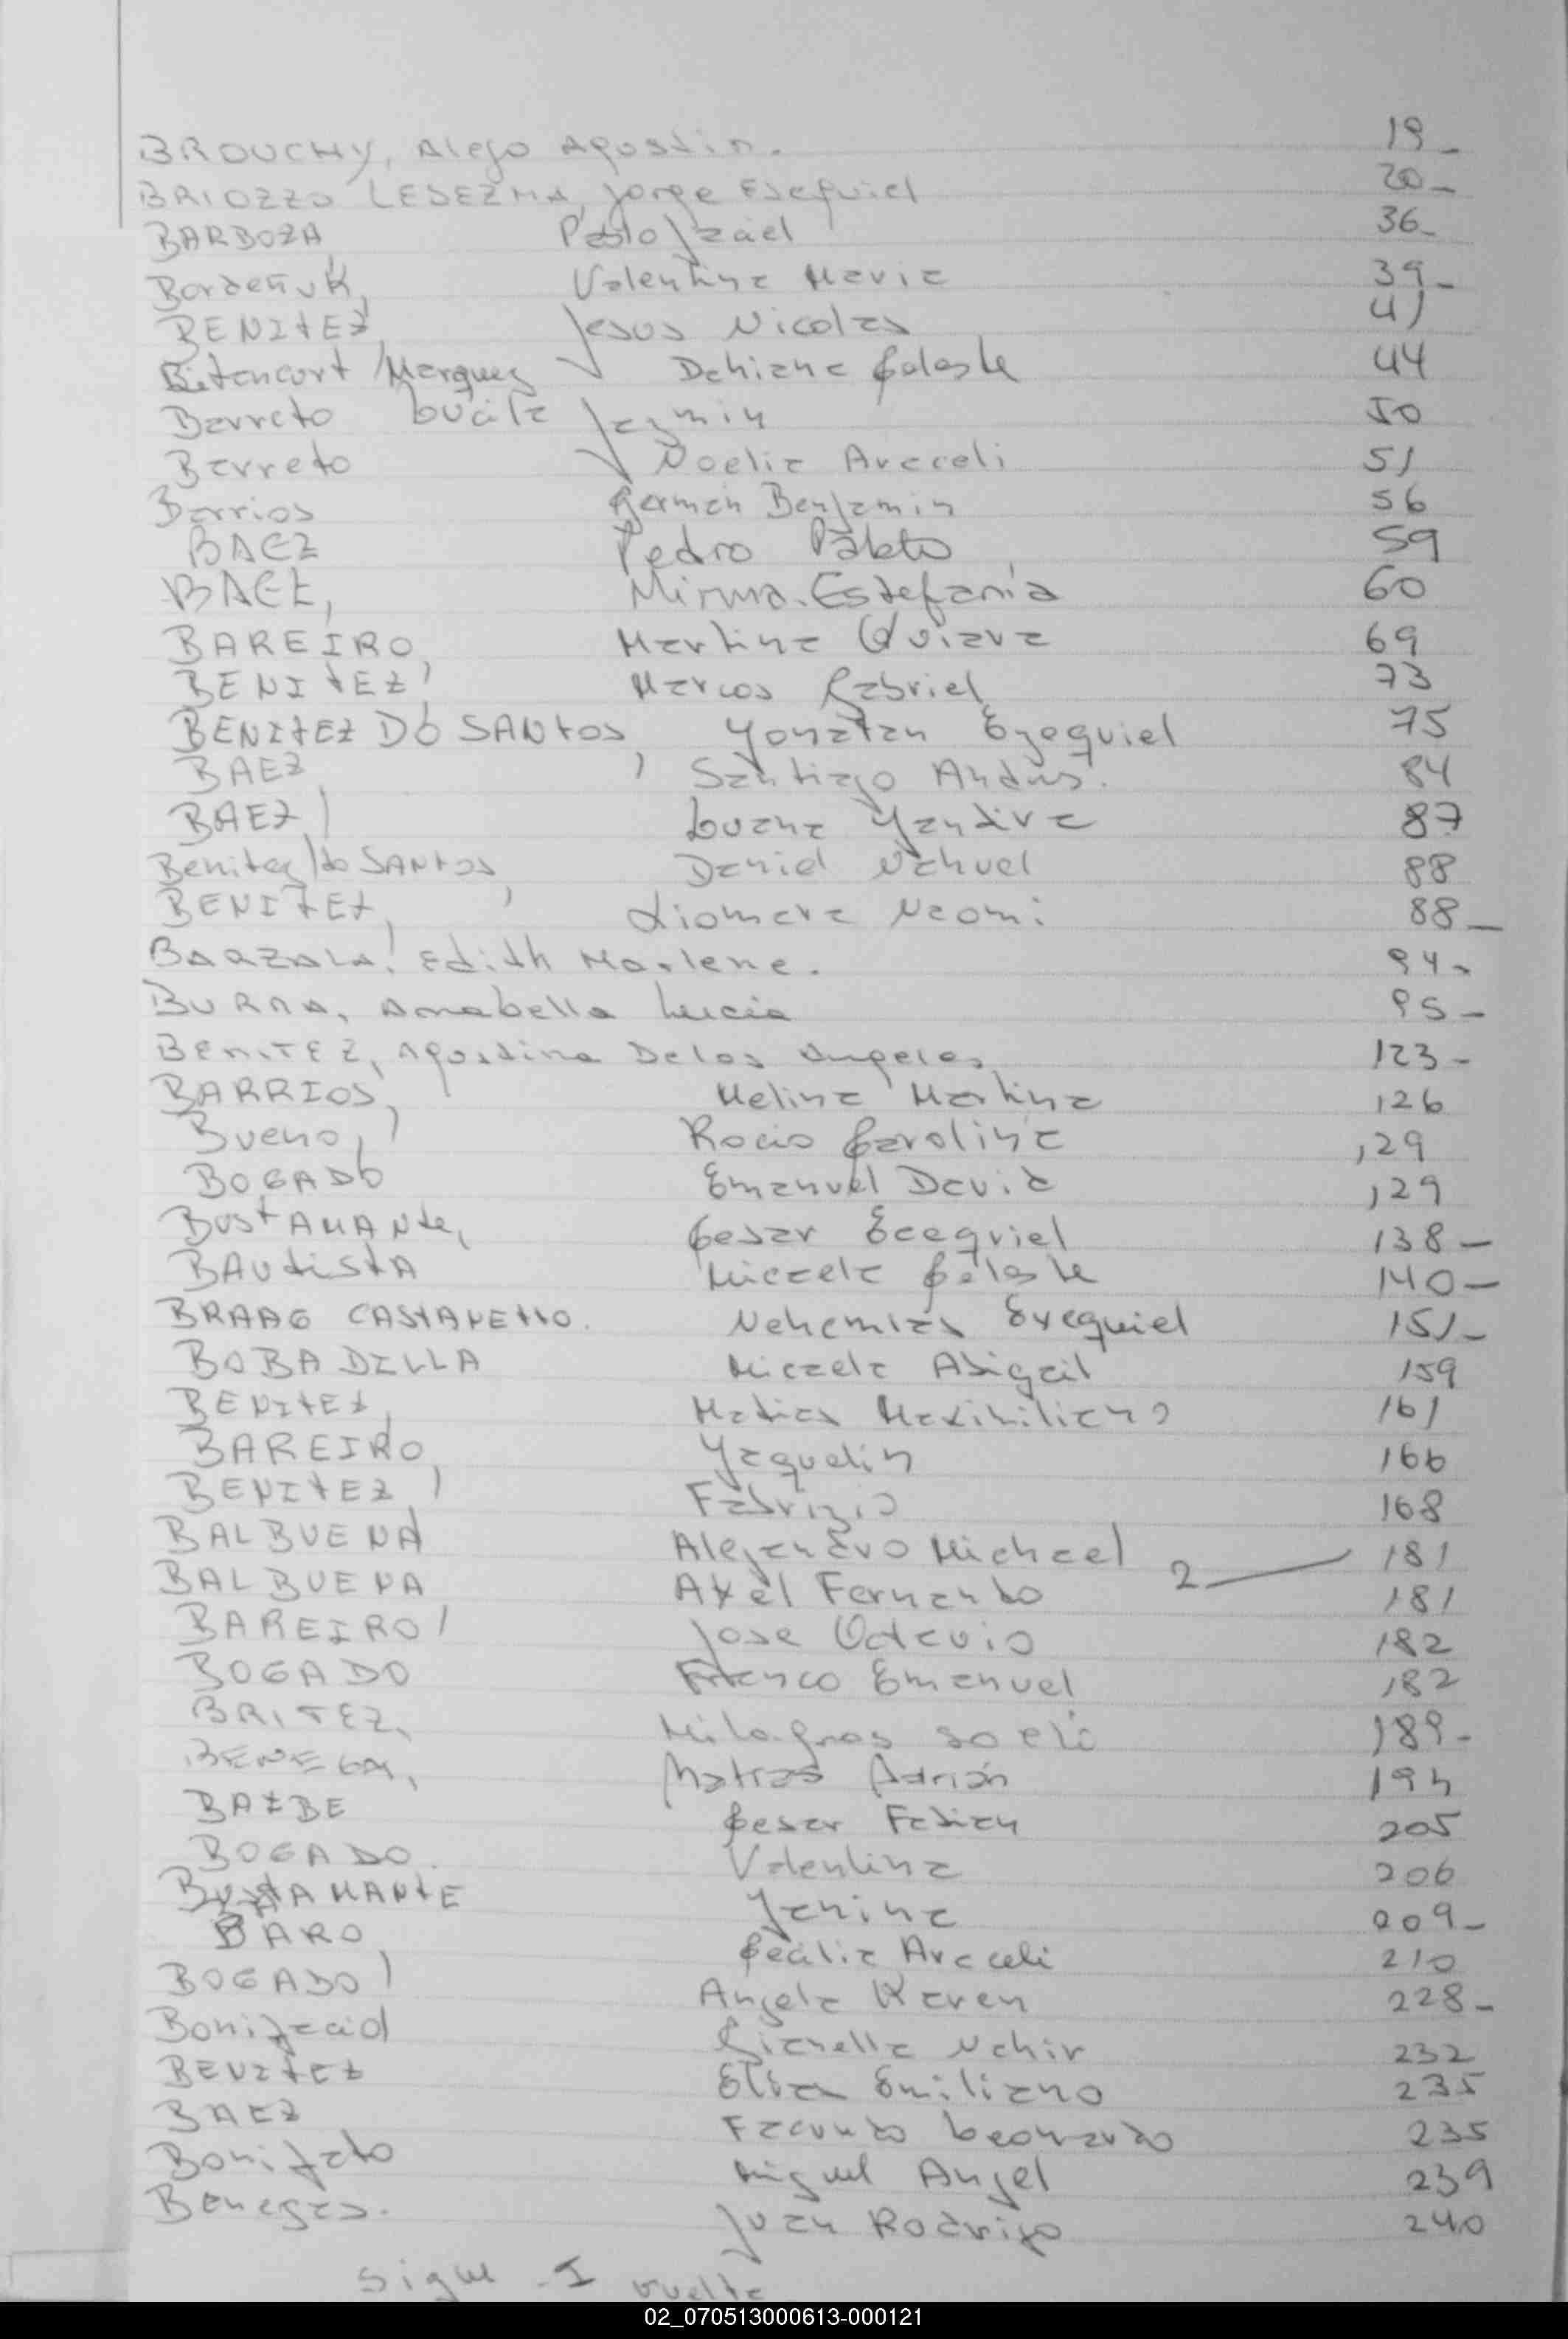 BROUCHY, Alejo Agostin. 19_
BRIOZZO LEDEZMA, Jorge Esequiel 20_
BARBOZA, Pablo Jzael 36_
Bordeñuk, Valentina Maria 39_
BENITEZ, Jesus Nicolas 41
Bitencort Marques Dahiana Celeste 44
Barreto Lucila Jazmin 50
Barreto Noelia Araceli 51
Barrios German Benjamin 56
BAEZ Pedro Pablo 59
BAEZ, Mirna Estefania 60
BAREIRO, Martina 69
BENITEZ, Marcos Gabriel 73
BENITEZ DO SANTOS, Yonatan Ezequiel 75
BAEZ, Santiago Andres. 84
BAEZ, Luana Yandira 87
Benitez do SANTOS, Daniel Nahuel 88
BENITEZ, Xiomara Naomi 88_
BARZALA, Edith Marlene. 94-
BURNA, Annabella Lucia 95-
BENITEZ, Agostina De los Angeles 123-
BARRIOS, Melina Martina 126
Bueno, Rocio Carolina 129
BOGADO Emanuel David 129
BUSTAMANte, Cesar Ecequiel 138-
BAUtistA Micaela Celeste 140-
BRAAG Nehemias Exequiel 151-
BOBADILLA Micaela Abigail 159
BENITEZ, Matias Maximiliano 161
BAREIRO, Yaquelin 166
BENITEZ, Fabrizio 168
BALBUENA Alejandro Michael 2 181
BALBUENA Axel Fernando 181
BAREIRO, Jose Octavio 182
BOGADO Franco Emanuel 182
BRITEZ, Milagros 189-
Matias Adrián 194
BAEZ Cesar Fabian 205
BOGADO. Valentina 206
BUSTAMANTE Janina 209-
BARO, Cecilia Araceli 210
BOGADO Angela Karen 228-
Bonifacio Gianella Nahir 232
BENITEZ Elias Emiliano 235
BAEZ Facundo Leonardo 235
Bonifato Miguel Angel 239
Benegas. Juan Rodrigo 240
Sigue -I vuelta
02_070513000613-000121